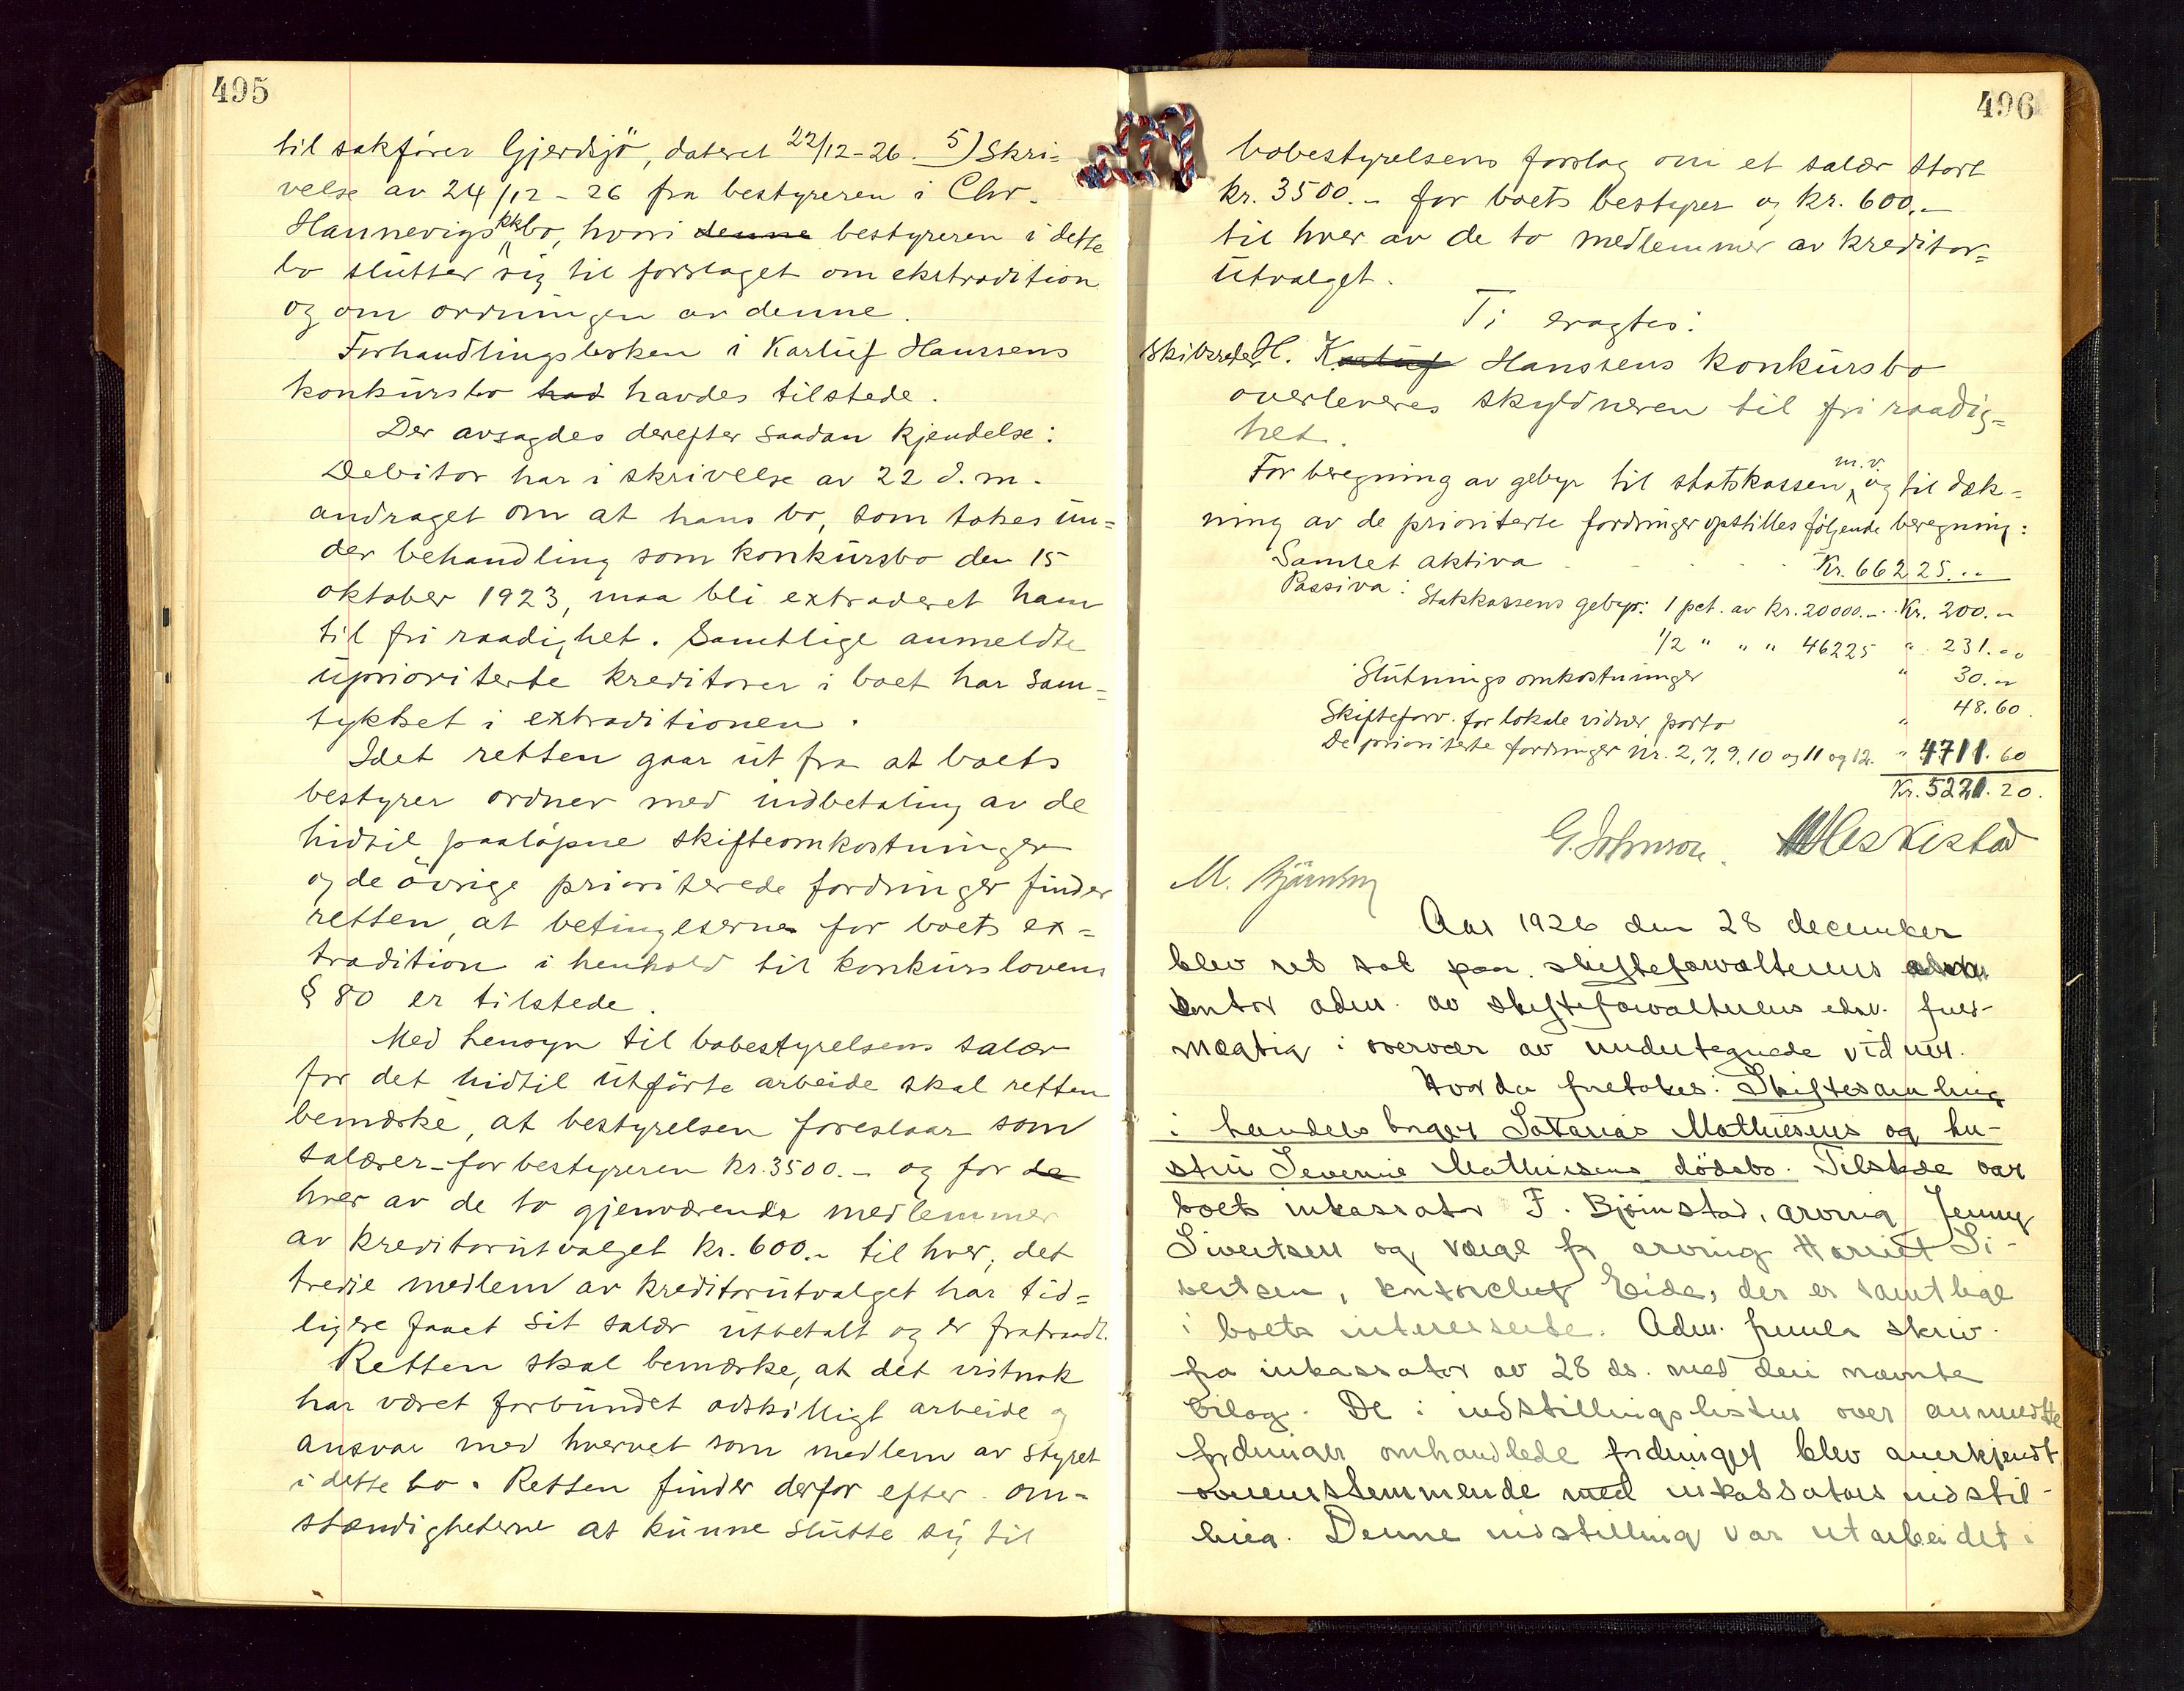 495
til sakfører Gjerdsjö, dateret 22/12-26. 5) Skri=
velse av 24/12-26 fra bestyreren i Chr.
Hannevigs kkbo, hvori denne bestyreren i dette
bo slutter sig til forslaget om ekstradition
og om ordningen av denne.
Forhandlingsboken i Karluf Hanssens
konkursbo had havdes tilstede.
Der avsagdes derefter saadan kjendelse:
Debitor har i skrivelse av 22 d.m.
andraget om at hans bo, som tokes un=
der behandling som konkursbo den 15
oktober 1923, maa bli extraderet ham
til fri raadighet. Samtlige anmeldte
uprioriterte kreditorer i boet har sam=
tykket i extraditionen.
Idet retten gaar ut fra at boets
bestyrer ordner med indbetaling av de
hidtil paaløpne skifteomkostninger
og de övrige prioriterede fordringer finder
retten, at betingelserne for boets ex=
tradition i henhold til konkurslovens
§ 80 er tilstede.
Med hensyn til bobestyrelsens salær
for det hidtil utførte arbeide skal retten
bemærke, at bestyrelsen foreslaar som
salærer for bestyreren kr. 3500.- og for de
hver av de to gjenværende medlemmer
av kreditorutvalget kr. 600.- til hver, det
tredie medlem av kreditorutvalget har tid=
ligere faaet sit salær utbetalt og er fratraadt.
Retten skal bemærke, at det vistnok
har været forbundet adskilligt arbeide og
ansvar med hvervet som medlem av styret
i dette bo. Retten finder derfor efter om=
stændigheterne at kunne slutte sig til
496
bobestyrelsens forslag om et salær stort
kr. 3500.- for boets bestyrer og kr. 600.-
til hver av de to medlemmer av kreditor=
utvalget.
Ti eragtes:
Skibsreder H. Karluf Hanssens konkursbo
overleveres skyldneren til fri raadig=
het.
For beregning av gebyr til statskassen m.v. og til dæk=
ning av de prioriterte fordringer opstilles følgende beregning:
Samlet aktiva Kr. 66225.-
Passiva: Statskassens gebyr: 1 pct. av kr. 20000.- Kr. 200.-
1/2 " " " 46225 " 231.00
Slutningsomkostninger " 30.-
Skifteforv. for lokale vidner, porto " 48.60
De prioriterte fordringer nr. 2, 7, 9, 10 og 11 og 12. " 4711.60
Kr. 5221.20.
G. Johnson.
M.
Aar 1926 den 28 december
blev ret sat paa skifteforvalterens
kontor adm. av skifteforvalterens edsv. fuld-
mægtig i overvær av undertegnede vidner.
Hvorda foretokes: Skiftesamling
i handelsborger Satarias Mathiesens og hu-
stru Severine Mathiesens dødsbo. Tilstede var
boets inkassator F. Bjørnstad, arving Jenny
Sivertsen og værge for arving Harriet Si-
vertsen, kontorchef Eide, der er samtlige
i boets interesserte. Adm. fremla skriv.
fra inkassator av 28 ds. med deri nævnte
bilag. De i indstillingslisten over anmeldte
fordringer omhandlede fordringer blev anerkjendt
overensstemmende med inkassators indstil-
ling. Denne indstilling var utarbeidet i